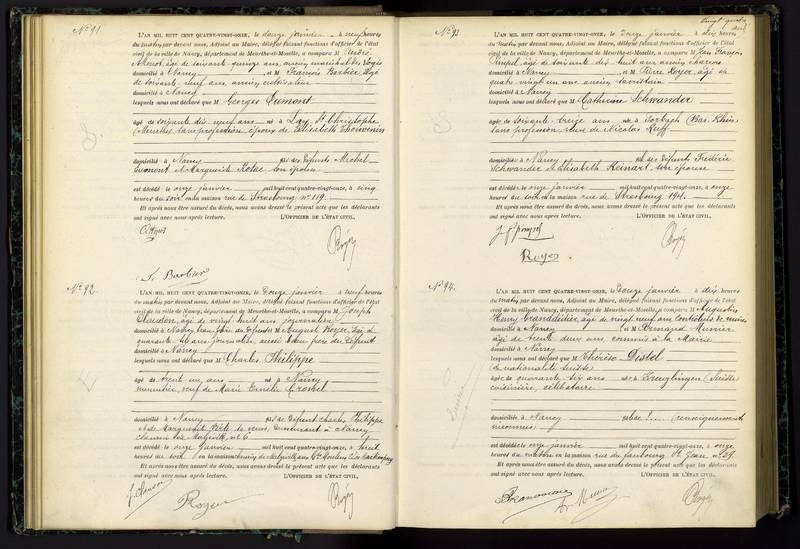 N° 91.
L'AN MIL HUIT CENT QUATRE-VINGT-ONZE, le douze janvier à neuf heures
du matin par devant nous, Adjoint au Maire, délégué faisant fonctions d'officier de l'état
civil de la ville de Nancy, département de Meurthe-et-Moselle, a comparu M André
âgé de soixante quinze ans, ancien maréchal des logis
domicilié à Nancy et M François Barbier, âgé
de soixante neuf ans, ancien cultivateur
domicilié à Nancy
lesquels nous ont déclaré que M Georges Dumont
âgé de soixante dix neuf ans né à Lay St Christophe
(Meurthe) sans profession, époux de Elisabeth Thouvenin
domicilié à Nancy fils des défunts Michel
Dumont et Marguerite son épouse
est décédé le onze janvier mil huit cent quatre-vingt-onze, à cinq
heures du soir en la maison rue de Strasbourg n° 119.
Et après nous être assuré du décès, nous avons dressé le présent acte que les déclarants
ont signé avec nous après lecture. L'OFFICIER DE L'ÉTAT CIVIL,
Barbier
N° 92.
L'AN MIL HUIT CENT QUATRE-VINGT-ONZE, le douze janvier à neuf heures
du matin par devant nous, Adjoint au Maire, délégué faisant fonctions d'officier de l'état
civil de la ville de Nancy, département de Meurthe-et-Moselle, a comparu M Joseph
Claudon, âgé de vingt huit ans, journalier
domicilié à Nancy, beau frère du défunt et M August Royer, âgé de
quarante ans journalier, aussi beau frère du défunt
domicilié à Nancy
lesquels nous ont déclaré que M Charles Philippe
âgé de trente un ans né à Nancy
veuf de Marie Emélie
domicilié à Nancy fils de défunt Charles Philippe
et de Marguerite sa veuve, demeurant à Nancy
est décédé le onze janvier mil huit cent quatre-vingt-onze, à huit
heures du soir en la maison
Et après nous être assuré du décès, nous avons dressé le présent acte que les déclarants
ont signé avec nous après lecture. L'OFFICIER DE L'ÉTAT CIVIL,
J Claudon
Royer
N° 93.
L'AN MIL HUIT CENT QUATRE-VINGT-ONZE, le douze janvier à dix heures
du matin par devant nous, Adjoint au Maire, délégué faisant fonctions d'officier de l'état
civil de la ville de Nancy, département de Meurthe-et-Moselle, a comparu M Jean François
âgé de soixante dix huit ans, ancien charron
domicilié à Nancy et M Pierre Royer, âgé de
quatre vingt un ans, ancien
domicilié à Nancy
lesquels nous ont déclaré que M Catherine Schwander
âgée de soixante treize ans née à Sorbach (Bas-Rhin)
sans profession, veuve de Nicolas Ruff
domiciliée à Nancy fille des défunts Frédéric
Schwander et Elisabeth Reinart, son épouse
est décédée le onze janvier mil huit cent quatre-vingt-onze, à onze
heures du soir en la maison rue de Strasbourg 191.
Et après nous être assuré du décès, nous avons dressé le présent acte que les déclarants
ont signé avec nous après lecture. L'OFFICIER DE L'ÉTAT CIVIL,
Royer
N° 94.
L'AN MIL HUIT CENT QUATRE-VINGT-ONZE, le douze janvier à dix heures
du matin par devant nous, Adjoint au Maire, délégué faisant fonctions d'officier de l'état
civil de la ville de Nancy, département de Meurthe-et-Moselle, a comparu M Augustin
Henry Granddidier, âgé de vingt neuf ans,
domicilié à Nancy et M Bernard Munier
âgé de trente deux ans, commis à la Mairie
domicilié à Nancy
lesquels nous ont déclaré que M Thérèse Distel
de nationalité suisse
âgée de quarante six ans née à Kreuzlingen (Suisse)
cuisinière, célibataire
domiciliée à Nancy fille de ! ... (renseignements
inconnus)
est décédée le onze janvier mil huit cent quatre-vingt-onze, à onze
heures du matin en la maison rue du faubourg St Jean n° 29.
Et après nous être assuré du décès, nous avons dressé le présent acte que les déclarants
ont signé avec nous après lecture. L'OFFICIER DE L'ÉTAT CIVIL,